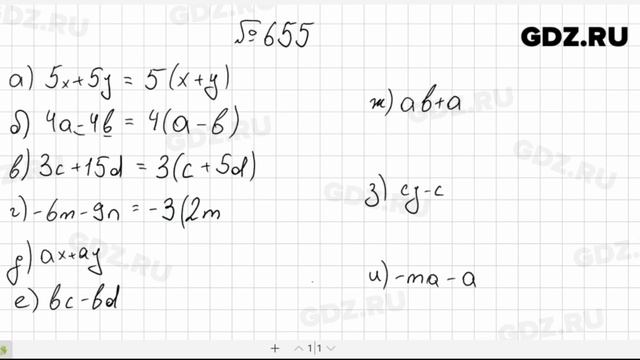 №655
GDZ.RU
а) 5x+5y = 5(x+y)
б) 4a-4b = 4(a-b)
в) 3c+15d = 3(c+5d)
г) -6m-9n = -3(2m
д) ax+ay
е) bc-bd
ж) ab+a
з) cy-c
и) -ma-a
GDZ.RU
GDZ.RU
GDZ.RU
GDZ.RU
GDZ.RU
GDZ.RU
GDZ.RU
GDZ.RU
+ 1|1